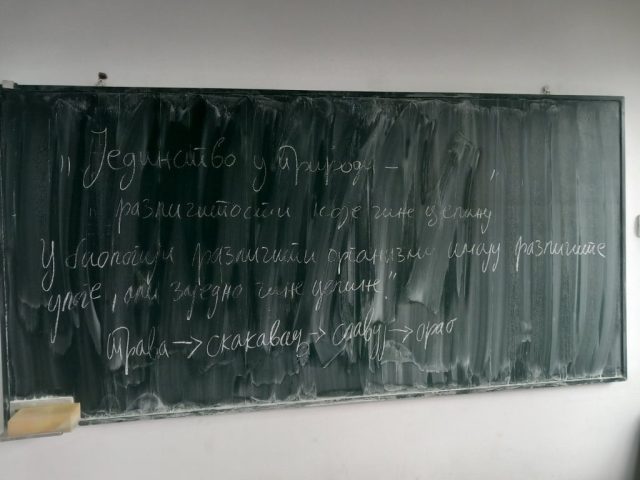 „Јединство у природи –
различитости које чине целину"
У биологији различити организми имају различите
улоге, али заједно чине целине."
трава → скакавац → славуј → орао